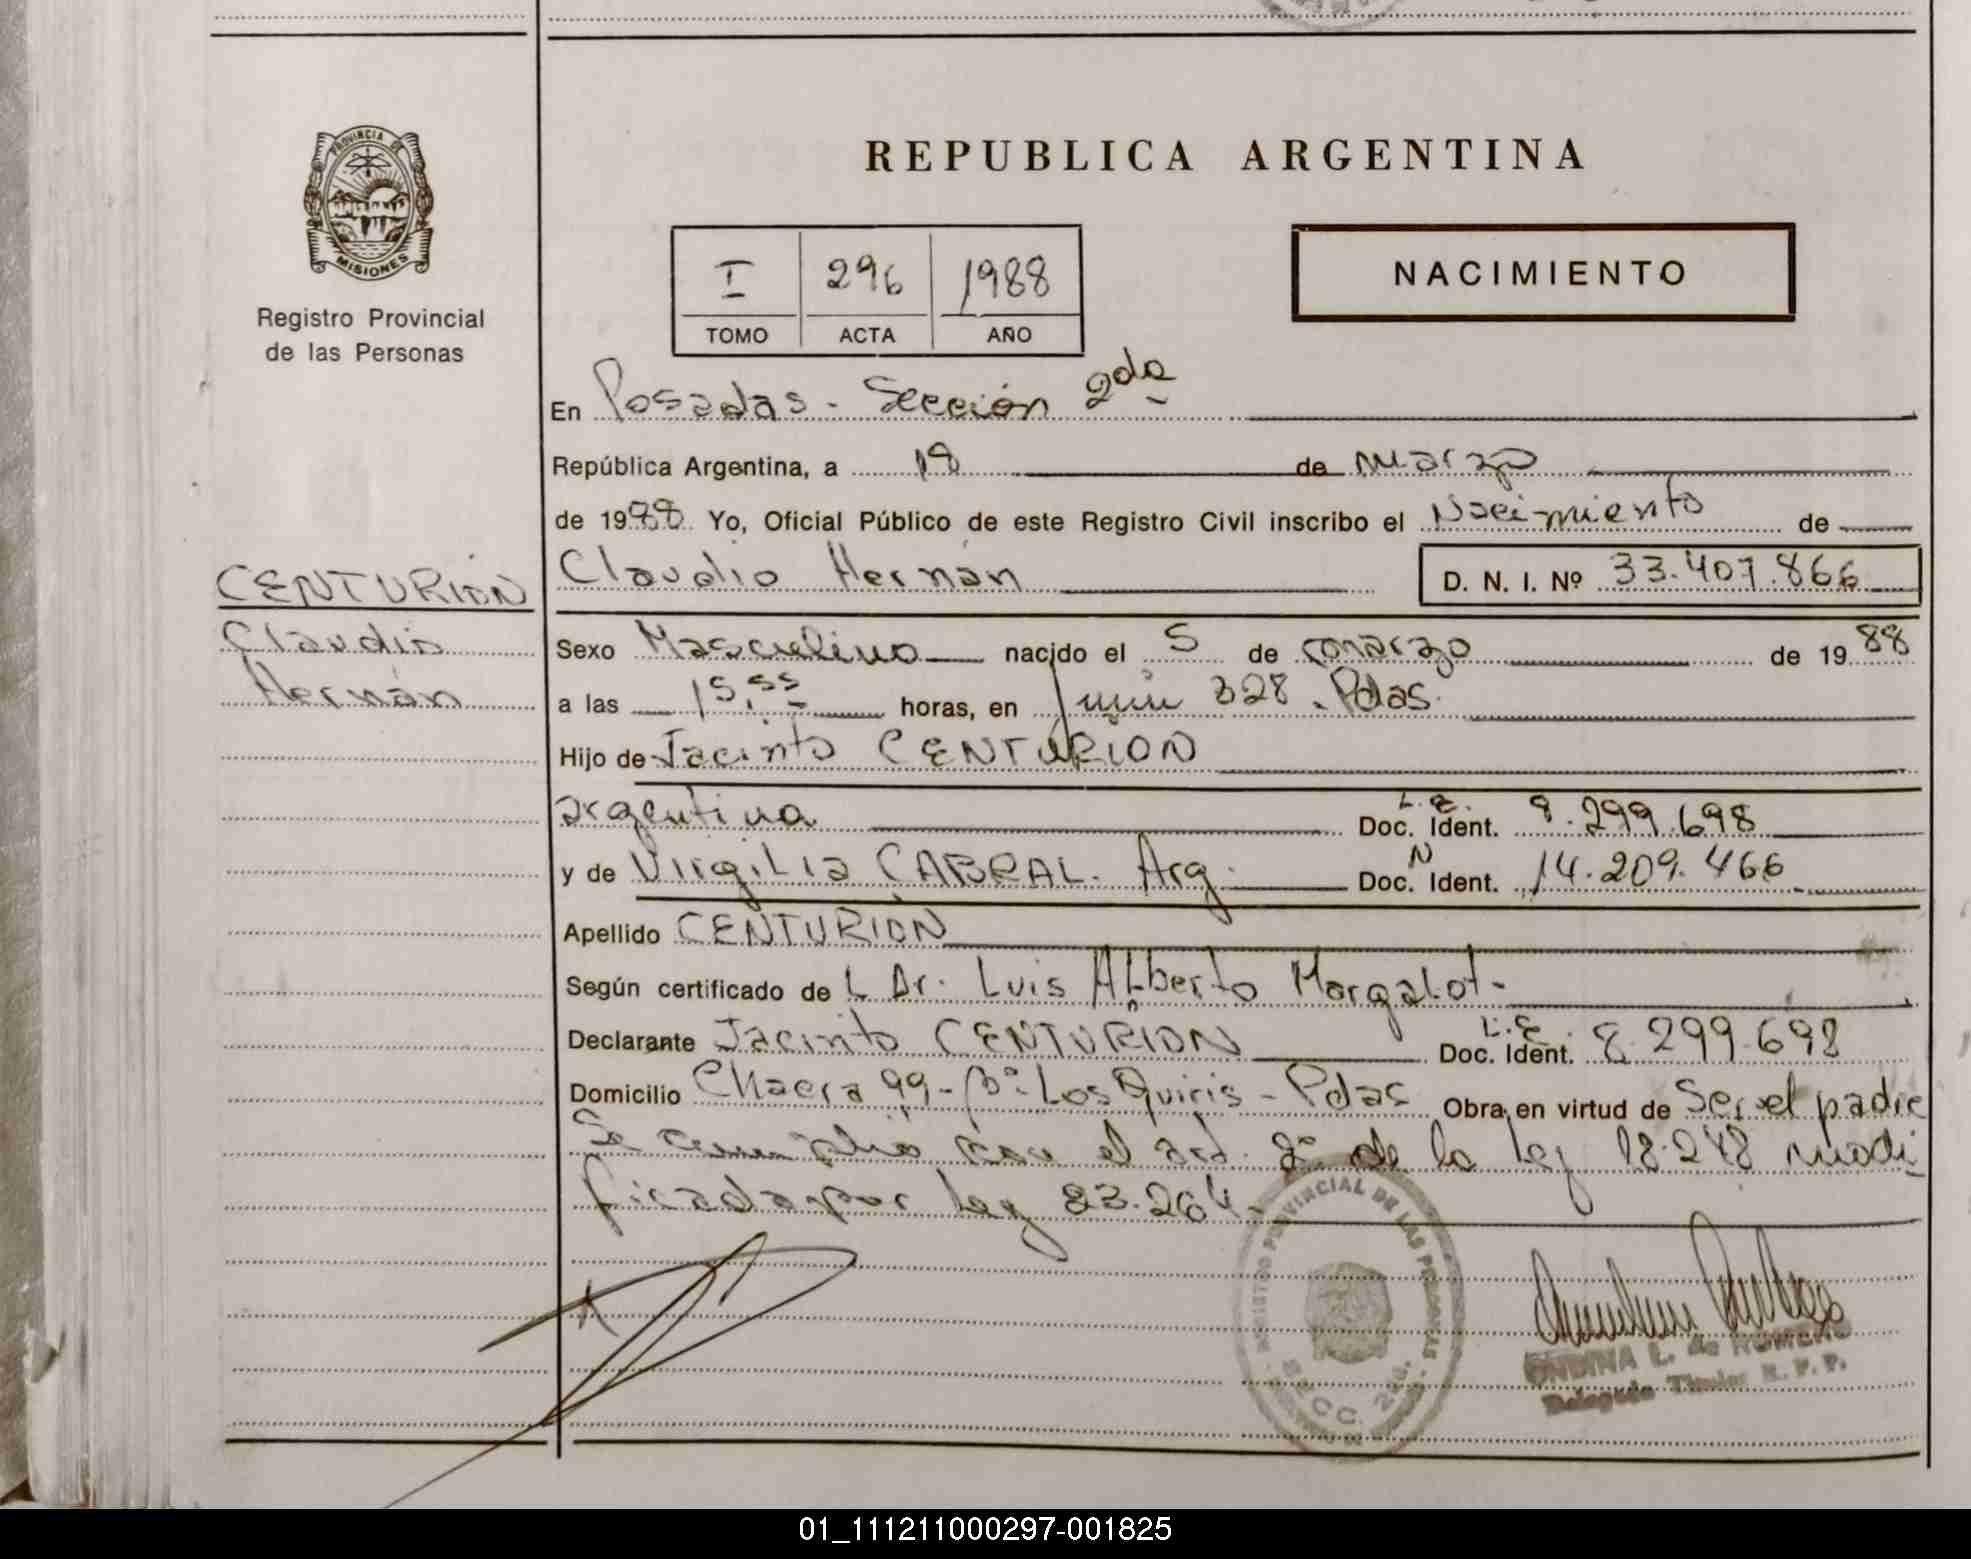 PROVINCIA DE
MISIONES
Registro Provincial
de las Personas
REPUBLICA ARGENTINA
I 296 1988
TOMO ACTA AÑO
NACIMIENTO
En Posadas - Sección 2da
República Argentina, a 18 de marzo
de 1988 Yo, Oficial Público de este Registro Civil inscribo el Nacimiento de
CENTURION
Claudio
Hernán
Claudio Hernán D. N. I. Nº 33.407.866
Sexo Masculino nacido el 5 de marzo de 1988
a las 15,55 horas, en Junin 328 - Pdas.
Hijo de Jacinto CENTURION
argentina L.E. Doc. Ident. 8.299.698
y de Virgilia CABRAL. Arg. N Doc. Ident. 14.209.466
Apellido CENTURION
Según certificado de L Dr. Luis Alberto Margalot-
Declarante Jacinto CENTURION L.E. Doc. Ident. 8.299.698
Domicilio Chacra 99 - Bº Los Quiris - Pdas Obra en virtud de Ser el padre
Se cumplio con el art. 2º de la ley 18.248 modi
ficada por ley 23.264.
REGISTRO PROVINCIAL DE LAS PERSONAS
SECC. 2da.
ONDINA L. de ROMERO
Delegada Titular R. P. P.
01_111211000297-001825